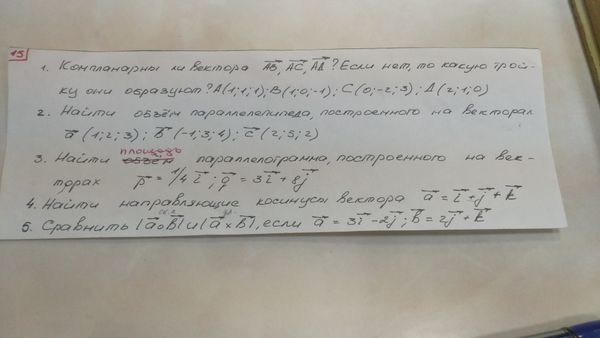 15
1. Компланарны ли вектора AB, AC, AД? Если нет, то какую трой-
ку они образуют? A(1;1;1); B(1;0;-1); C(0;-2;3); Д(2;1;0)
2. Найти объём параллелепипеда, построенного на векторах
a (1;2;3); b (-1;3;4); c (2;5;2)
площадь
3. Найти параллелограмма, построенного на век-
торах p = 1/4 i; q = 3i + 8j
4. Найти направляющие косинусы вектора a = i + j + k
5. Сравнить |a∘b| и |a×b|, если a = 3i - 2j; b = 2j + k